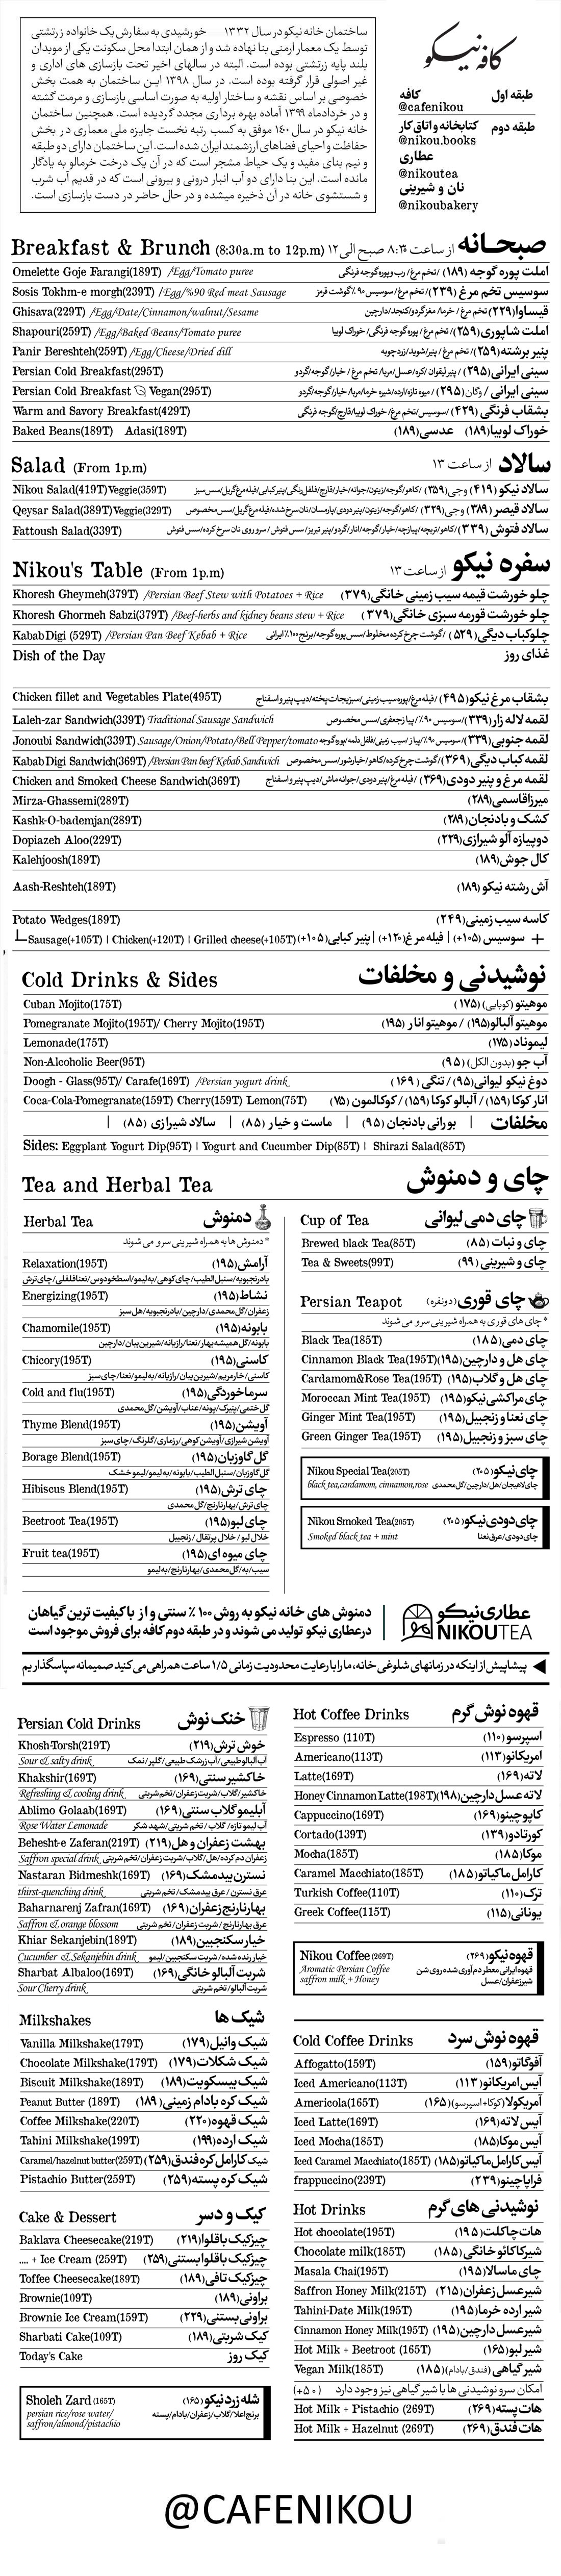 کافه نیکو
طبقه اول کافه
@cafenikou
طبقه دوم کتابخانه و اتاق کار
@nikou.books
عطاری
@nikoutea
نان و شیرینی
@nikoubakery
ساختمان خانه نیکو در سال ۱۳۳۲ خورشیدی به سفارش یک خانواده زرتشتی
توسط یک معمار ارمنی بنا نهاده شد و از همان ابتدا محل سکونت یکی از موبدان
بلند پایه زرتشتی بوده است. البته در سالهای اخیر تحت بازسازی های اداری و
غیر اصولی قرار گرفته بوده است. در سال ۱۳۹۸ این ساختمان به همت بخش
خصوصی بر اساس نقشه و ساختار اولیه به صورت اساسی بازسازی و مرمت گشته
و در خردادماه ۱۳۹۹ آماده بهره برداری مجدد گردیده است. همچنین ساختمان
خانه نیکو در سال ۱۴۰۰ موفق به کسب رتبه نخست جایزه ملی معماری در بخش
حفاظت و احیای فضاهای ارزشمند ایران شده است. این ساختمان دارای دو طبقه
و نیم بنای مفید و یک حیاط مشجر است که در آن یک درخت خرمالو به یادگار
مانده است. این بنا دارای دو آب انبار درونی و بیرونی است که در قدیم آب شرب
و شستشوی خانه در آن ذخیره میشده و در حال حاضر در دست بازسازی است.
Breakfast & Brunch (8:30a.m to 12p.m) صبحانه از ساعت ۸:۳۰ صبح الی ۱۲
Omelette Goje Farangi(189T) /Egg/Tomato puree املت پوره گوجه (۱۸۹) /تخم مرغ/ رب و پوره گوجه فرنگی
Sosis Tokhm-e morgh(239T) /Egg/%90 Red meat Sausage سوسیس تخم مرغ (۲۳۹) /تخم مرغ/ سوسیس ۹۰٪ گوشت قرمز
Ghisava(229T) /Egg/Date/Cinnamon/walnut/Sesame قیساوا(۲۲۹) /تخم مرغ/ خرما/ مغز گردو/کنجد/دارچین
Shapouri(259T) /Egg/Baked Beans/Tomato puree املت شاپوری(۲۵۹) /تخم مرغ/ پوره گوجه فرنگی/ خوراک لوبیا
Panir Bereshteh(259T) /Egg/Cheese/Dried dill پنیر برشته(۲۵۹) /تخم مرغ/ پنیر/شوید/زردچوبه
Persian Cold Breakfast(295T) سینی ایرانی(۲۹۵) / پنیر لیقوان /کره/عسل/مربا/ تخم مرغ/ خیار/گوجه/گردو
Persian Cold Breakfast Vegan(295T) سینی ایرانی / وگان(۲۹۵) / میوه تازه/ارده/شیره خرما/مربا/ خیار/گوجه/گردو
Warm and Savory Breakfast(429T) بشقاب فرنگی (۴۲۹) /سوسیس/تخم مرغ/ خوراک لوبیا/قارچ/گوجه فرنگی
Baked Beans(189T) Adasi(189T) خوراک لوبیا(۱۸۹) عدسی(۱۸۹)
Salad (From 1p.m) سالاد از ساعت ۱۳
Nikou Salad(419T) Veggie(359T) سالاد نیکو (۴۱۹) وجی(۳۵۹) /کاهو/گوجه/زیتون/جوانه/خیار/قارچ/فلفل رنگی/پنیر کبابی/فیله مرغ گریل/سس سبز
Qeysar Salad(389T) Veggie(329T) سالاد قیصر (۳۸۹) وجی(۳۲۹) /کاهو/گوجه/زیتون/پنیر دودی/پارمسان/نان سرخ شده/فیله مرغ گریل/سس مخصوص
Fattoush Salad(339T) سالاد فتوش (۳۳۹) /کاهو/تربچه/پیازچه/خیار/گوجه/انار/گردو/پنیر تبریز/ سس فتوش / سرو روی نان سرخ کرده/سس فتوش
Nikou's Table (From 1p.m) سفره نیکو از ساعت ۱۳
Khoresh Gheymeh(379T) /Persian Beef Stew with Potatoes + Rice چلو خورشت قیمه سیب زمینی خانگی(۳۷۹)
Khoresh Ghormeh Sabzi(379T) /Beef-herbs and kidney beans stew + Rice چلو خورشت قورمه سبزی خانگی(۳۷۹)
Kabab Digi (529T) /Persian Pan Beef Kebab + Rice چلوکباب دیگی( ۵۲۹) /گوشت چرخ کرده مخلوط/سس پوره گوجه/برنج ۱۰۰٪ ایرانی
Dish of the Day غذای روز
Chicken fillet and Vegetables Plate(495T) بشقاب مرغ نیکو(۴۹۵) /فیله مرغ/پوره سیب زمینی/سبزیجات پخته/دیپ پنیر و اسفناج
Laleh-zar Sandwich(339T) Traditional Sausage Sandwich لقمه لاله زار(۳۳۹)/سوسیس ۹۰٪/ پیاز جعفری/سس مخصوص
Jonoubi Sandwich(339T) Sausage/Onion/Potato/Bell Pepper/tomato لقمه جنوبی(۳۳۹)/سوسیس ۹۰٪/پیاز/ سیب زمینی/فلفل دلمه/پوره گوجه
Kabab Digi Sandwich(369T) /Persian Pan beef Kebab Sandwich لقمه کباب دیگی(۳۶۹)/گوشت چرخ کرده/کاهو/خیارشور/سس مخصوص
Chicken and Smoked Cheese Sandwich(369T) لقمه مرغ و پنیر دودی(۳۶۹) /فیله مرغ/پنیر دودی/جوانه ماش/دیپ پنیر و اسفناج
Mirza-Ghassemi(289T) میرزاقاسمی(۲۸۹)
Kashk-O-bademjan(289T) کشک و بادنجان(۲۸۹)
Dopiazeh Aloo(229T) دوپیازه آلو شیرازی(۲۲۹)
Kalehjoosh(189T) کال جوش(۱۸۹)
Aash-Reshteh(189T) آش رشته نیکو (۱۸۹)
Potato Wedges(189T) کاسه سیب زمینی(۲۴۹)
Sausage(+105T) | Chicken(+120T) | Grilled cheese(+105T) + سوسیس (۱۰۵+) | فیله مرغ(۱۲۰+) | پنیر کبابی(۱۰۵+)
Cold Drinks & Sides نوشیدنی و مخلفات
Cuban Mojito(175T) موهیتو (کوبایی) (۱۷۵)
Pomegranate Mojito(195T)/ Cherry Mojito(195T) موهیتو آلبالو(۱۹۵) / موهیتو انار (۱۹۵)
Lemonade(175T) لیموناد(۱۷۵)
Non-Alcoholic Beer(95T) آب جو (بدون الکل) (۹۵)
Doogh - Glass(95T)/ Carafe(169T) /Persian yogurt drink دوغ نیکو لیوانی(۹۵) / تنگی (۱۶۹)
Coca-Cola-Pomegranate(159T) Cherry(159T) Lemon(75T) انار کوکا (۱۵۹) / آلبالو کوکا (۱۵۹) / کوکالمون (۷۵)
مخلفات | بورانی بادنجان (۹۵) | ماست و خیار (۸۵) | سالاد شیرازی (۸۵) |
Sides: Eggplant Yogurt Dip(95T) | Yogurt and Cucumber Dip(85T) | Shirazi Salad(85T)
Tea and Herbal Tea چای و دمنوش
Herbal Tea دمنوش
* دمنوش ها به همراه شیرینی سرو می شوند
Relaxation(195T) آرامش(۱۹۵)
بادرنجبویه/سنبل الطیب/چای کوهی/به لیمو/اسطوخودوس/نعنافلفلی/چای ترش
Energizing(195T) نشاط(۱۹۵)
زعفران/گل محمدی/دارچین/بادرنجبویه/هل سبز
Chamomile(195T) بابونه(۱۹۵)
بابونه/گل همیشه بهار/نعنا/رازیانه/شیرین بیان/دارچین
Chicory(195T) کاسنی(۱۹۵)
کاسنی/خارمریم/شیرین بیان/رازیانه/به لیمو/نعنا/چای سبز
Cold and flu(195T) سرماخوردگی(۱۹۵)
گل ختمی/پنیرک/پونه/عناب/آویشن/گل محمدی
Thyme Blend(195T) آویشن(۱۹۵)
آویشن شیرازی/آویشن کوهی/رزماری/گلرنگ/چای سبز
Borage Blend(195T) گل گاوزبان(۱۹۵)
گل گاوزبان/سنبل الطیب/بابونه/به لیمو/لیمو خشک
Hibiscus Blend(195T) چای ترش(۱۹۵)
چای ترش/بهارنارنج/گل محمدی
Beetroot Tea(195T) چای لبو(۱۹۵)
خلال لبو/ خلال پرتقال / زنجبیل
Fruit tea(195T) چای میوه ای(۱۹۵)
سیب/به/گل محمدی/بهارنارنج/به لیمو
Cup of Tea چای دمی لیوانی
Brewed black Tea(85T) چای و نبات (۸۵)
Tea & Sweets(99T) چای و شیرینی (۹۹)
Persian Teapot چای قوری (دونفره)
* چای های قوری به همراه شیرینی سرو می شوند
Black Tea(185T) چای دمی(۱۸۵)
Cinnamon Black Tea(195T) چای هل و دارچین(۱۹۵)
Cardamom&Rose Tea(195T) چای هل و گلاب(۱۹۵)
Moroccan Mint Tea(195T) چای مراکشی نیکو(۱۹۵)
Ginger Mint Tea(195T) چای نعنا و زنجبیل(۱۹۵)
Green Ginger Tea(195T) چای سبز و زنجبیل(۱۹۵)
Nikou Special Tea(205T) چای نیکو(۲۰۵)
black tea,cardamom, cinnamon,rose چای لاهیجان/هل/دارچین/گل محمدی
Nikou Smoked Tea(205T) چای دودی نیکو(۲۰۵)
Smoked black tea + mint چای دودی/عرق نعنا
عطاری نیکو
NIKOUTEA
دمنوش های خانه نیکو به روش ۱۰۰ ٪ سنتی و از با کیفیت ترین گیاهان
در عطاری نیکو تولید می شوند و در طبقه دوم کافه برای فروش موجود است
پیشاپیش از اینکه در زمانهای شلوغی خانه، ما را با رعایت محدودیت زمانی ۱/۵ ساعت همراهی می کنید صمیمانه سپاسگذاریم
Persian Cold Drinks خنک نوش
Khosh-Torsh(219T) خوش ترش(۲۱۹)
Sour & salty drink آب آلبالو طبیعی/آب زرشک طبیعی/گلپر/نمک
Khakshir(169T) خاکشیر سنتی(۱۶۹)
Refreshing & cooling drink خاکشیر/گلاب/شربت زعفران/تخم شربتی
Ablimo Golaab(169T) آبلیمو گلاب سنتی(۱۶۹)
Rose Water Lemonade آب لیمو تازه/ گلاب / تخم شربتی/شهد شکر
Behesht-e Zaferan(219T) بهشت زعفران و هل(۲۱۹)
Saffron special drink زعفران دم کرده/هل/گلاب/شربت زعفران/ تخم شربتی
Nastaran Bidmeshk(169T) نسترن بیدمشک(۱۶۹)
thirst-quenching drink عرق نسترن / عرق بیدمشک/ تخم شربتی
Baharnarenj Zafran(169T) بهارنارنج زعفران (۱۶۹)
Saffron & orange blossom عرق بهارنارنج / شربت زعفران/ تخم شربتی
Khiar Sekanjebin(189T) خیار سکنجبین(۱۸۹)
Cucumber & Sekanjebin drink خیار رنده شده/ شربت سکنجبین/لیمو
Sharbat Albaloo(169T) شربت آلبالو خانگی(۱۶۹)
Sour Cherry drink شربت آلبالو/ تخم شربتی
Milkshakes شیک ها
Vanilla Milkshake(179T) شیک وانیل(۱۷۹)
Chocolate Milkshake(179T) شیک شکلات(۱۷۹)
Biscuit Milkshake(189T) شیک بیسکویت(۱۸۹)
Peanut Butter (189T) شیک کره بادام زمینی(۱۸۹)
Coffee Milkshake(220T) شیک قهوه(۲۲۰)
Tahini Milkshake(199T) شیک ارده(۱۹۹)
Caramel/hazelnut butter(259T) شیک کارامل کره فندق(۲۵۹)
Pistachio Butter(259T) شیک کره پسته(۲۵۹)
Cake & Dessert کیک و دسر
Baklava Cheesecake(219T) چیزکیک باقلوا(۲۱۹)
.... + Ice Cream (259T) چیزکیک باقلوا بستنی(۲۵۹)
Toffee Cheesecake(189T) چیزکیک تافی(۱۸۹)
Brownie(109T) براونی(۱۸۹)
Brownie Ice Cream(159T) براونی بستنی(۲۲۹)
Sharbati Cake(109T) کیک شربتی(۱۸۹)
Today's Cake کیک روز
Sholeh Zard (165T) شله زرد نیکو(۱۶۵)
persian rice/rose water/ برنج اعلا/گلاب/زعفران/بادام/پسته
saffron/almond/pistachio
Hot Coffee Drinks قهوه نوش گرم
Espresso (110T) اسپرسو(۱۱۰)
Americano(113T) امریکانو(۱۱۳)
Latte(169T) لاته(۱۶۹)
Honey Cinnamon Latte(198T) لاته عسل دارچین(۱۹۸)
Cappuccino(169T) کاپوچینو(۱۶۹)
Cortado(139T) کورتادو(۱۳۹)
Mocha(185T) موکا(۱۸۵)
Caramel Macchiato(185T) کارامل ماکیاتو(۱۸۵)
Turkish Coffee(110T) ترک(۱۱۰)
Greek Coffee(115T) یونانی(۱۱۵)
Nikou Coffee (269T) قهوه نیکو(۲۶۹)
Aromatic Persian Coffee قهوه ایرانی معطر دم آوری شده روی شن
saffron milk +Honey شیرزعفران/عسل
Cold Coffee Drinks قهوه نوش سرد
Affogatto(159T) آفوگاتو(۱۵۹)
Iced Americano(113T) آیس امریکانو(۱۱۳)
Americola(165T) آمریکولا(کوکا+اسپرسو)(۱۶۵)
Iced Latte(169T) آیس لاته(۱۶۹)
Iced Mocha(185T) آیس موکا(۱۸۵)
Iced Caramel Macchiato(185T) آیس کارامل ماکیاتو(۱۸۵)
frappuccino(239T) فراپاچینو(۲۳۹)
Hot Drinks نوشیدنی های گرم
Hot chocolate(195T) هات چاکلت(۱۹۵)
Chocolate milk(185T) شیرکاکائو خانگی(۱۸۵)
Masala Chai(195T) چای ماسالا(۱۹۵)
Saffron Honey Milk(215T) شیرعسل زعفران(۲۱۵)
Tahini-Date Milk(195T) شیر ارده خرما(۱۹۵)
Cinnamon Honey Milk(195T) شیرعسل دارچین(۱۹۵)
Hot Milk + Beetroot (165T) شیر لبو(۱۶۵)
Vegan Milk(185T) شیر گیاهی (فندق/بادام)(۱۸۵)
امکان سرو نوشیدنی ها با شیر گیاهی نیز وجود دارد (۵۰+)
Hot Milk + Pistachio (269T) هات پسته(۲۶۹)
Hot Milk + Hazelnut (269T) هات فندق(۲۶۹)
@CAFENIKOU